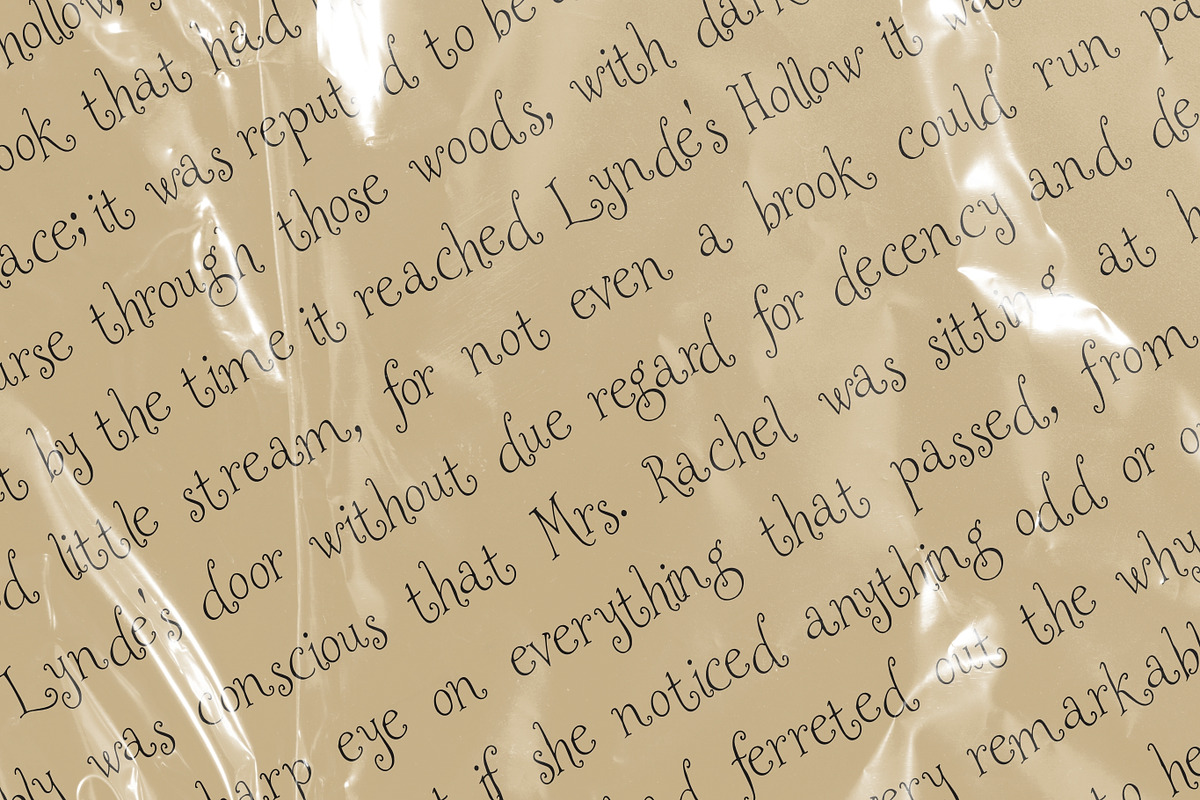 hollow,
ook that had
ace; it was reput d to be
urse through those woods, with dark
t by the time it reached Lynde's Hollow it was
d little stream, for not even a brook could run pa
Lynde's door without due regard for decency and de
bly was conscious that Mrs. Rachel was sitting at h
harp eye on everything that passed, from
if she noticed anything odd or o
ferreted out the why
ery remarkab
to he